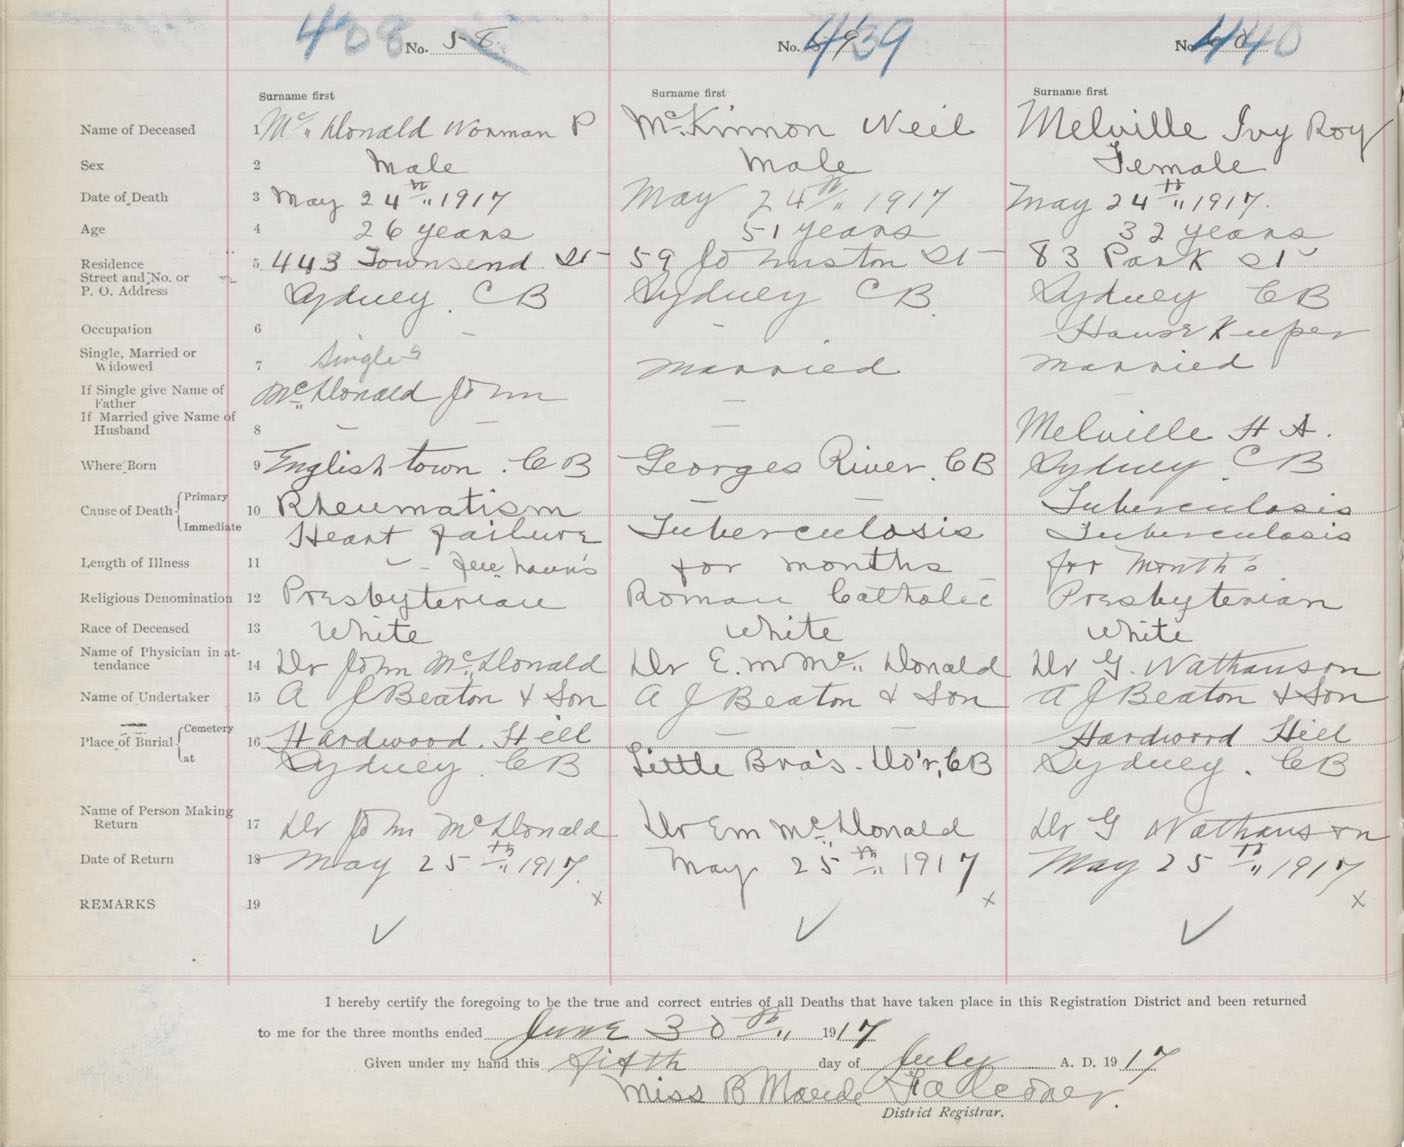 408 No. 58 No. 59 439 No. 60 440
Surname first Surname first Surname first
Name of Deceased 1 Mc Donald Norman P McKinnon Neil Melville Ivy Roy
Sex 2 Male Male Female
Date of Death 3 May 24th 1917 May 24th 1917 May 24th 1917.
Age 4 26 years 51 years 32 years
Residence 5 443 Townsend St 59 Johnston St 83 Park St
Street and No. or
P. O. Address Sydney. CB Sydney CB. Sydney CB
Occupation 6 — — House Keeper
Single, Married or
Widowed 7 Single married married
If Single give Name of
Father McDonald John —
If Married give Name of
Husband 8 — — — Melville H A.
Where Born 9 Englishtown. CB Georges River. CB Sydney CB
Cause of Death Primary 10 Rheumatism — — Tuberculosis
Immediate Heart failure Tuberculosis Tuberculosis
Length of Illness 11 few hours for months for Months
Religious Denomination 12 Presbyterian Roman Catholic Presbyterian
Race of Deceased 13 White White White
Name of Physician in at-
tendance 14 Dr John McDonald Dr E. M Mc Donald Dr G. Nathanson
Name of Undertaker 15 A J Beaton & Son A J Beaton & Son A J Beaton & Son
Place of Burial Cemetery 16 Hardwood. Hill — — Hardwood Hill
at Sydney. CB Little Bra's. Do'r, CB Sydney. CB
Name of Person Making
Return 17 Dr John McDonald Dr E M McDonald Dr G Nathanson
Date of Return 18 May 25th 1917. May 25th 1917 May 25th 1917
REMARKS 19 x x x
✓ ✓ ✓
I hereby certify the foregoing to be the true and correct entries of all Deaths that have taken place in this Registration District and been returned
to me for the three months ended June 30th 1917
Given under my hand this fifth day of July A. D. 1917
Miss B Maude Falconer.
District Registrar.